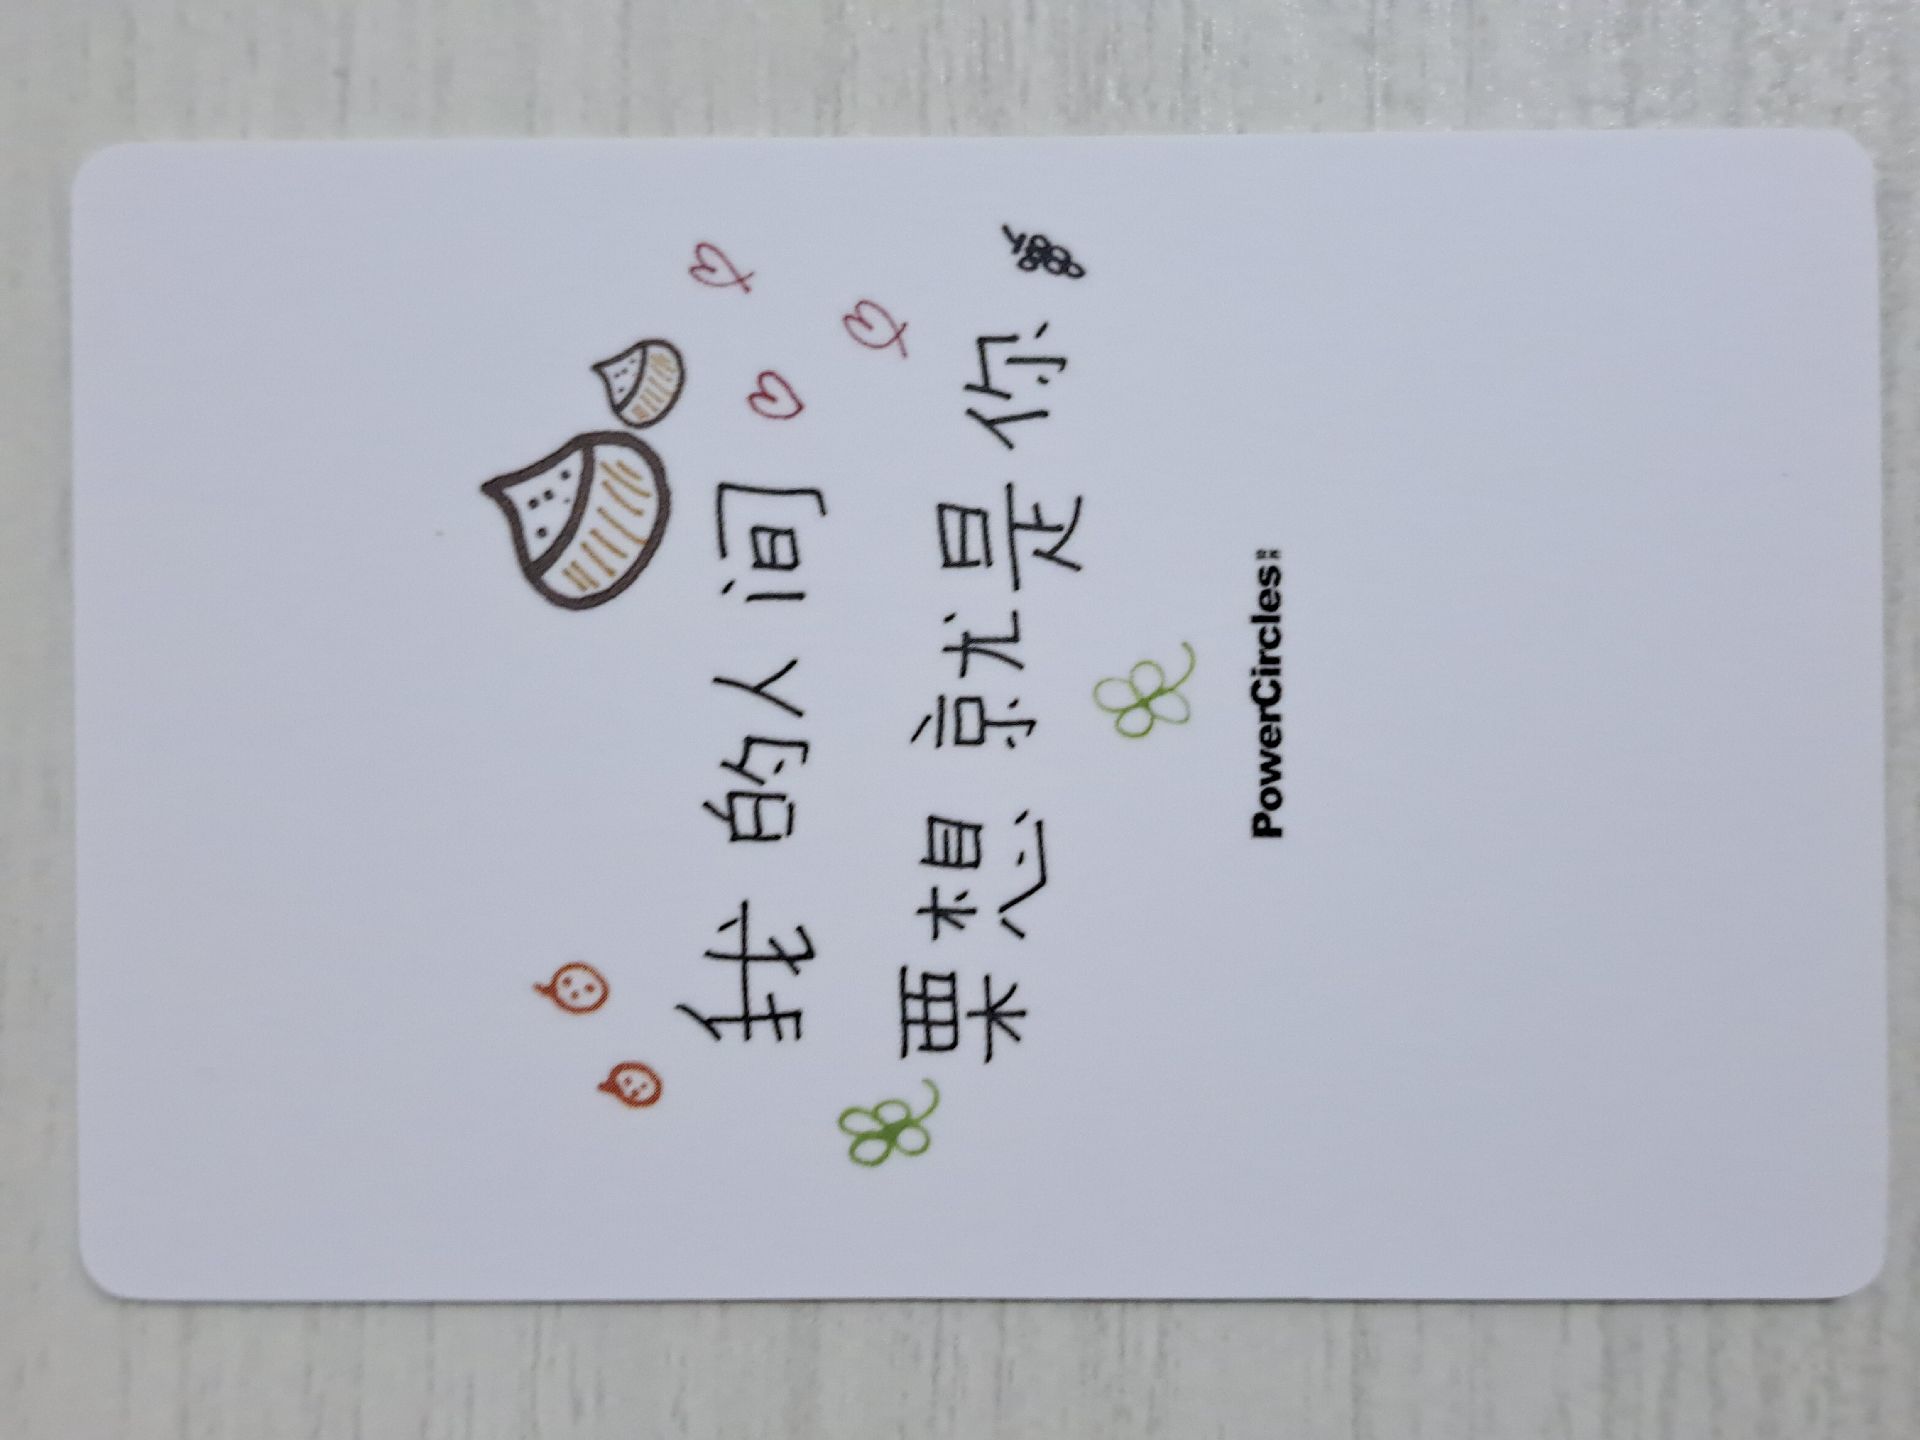 我的人间
栗想就是你
PowerCircles